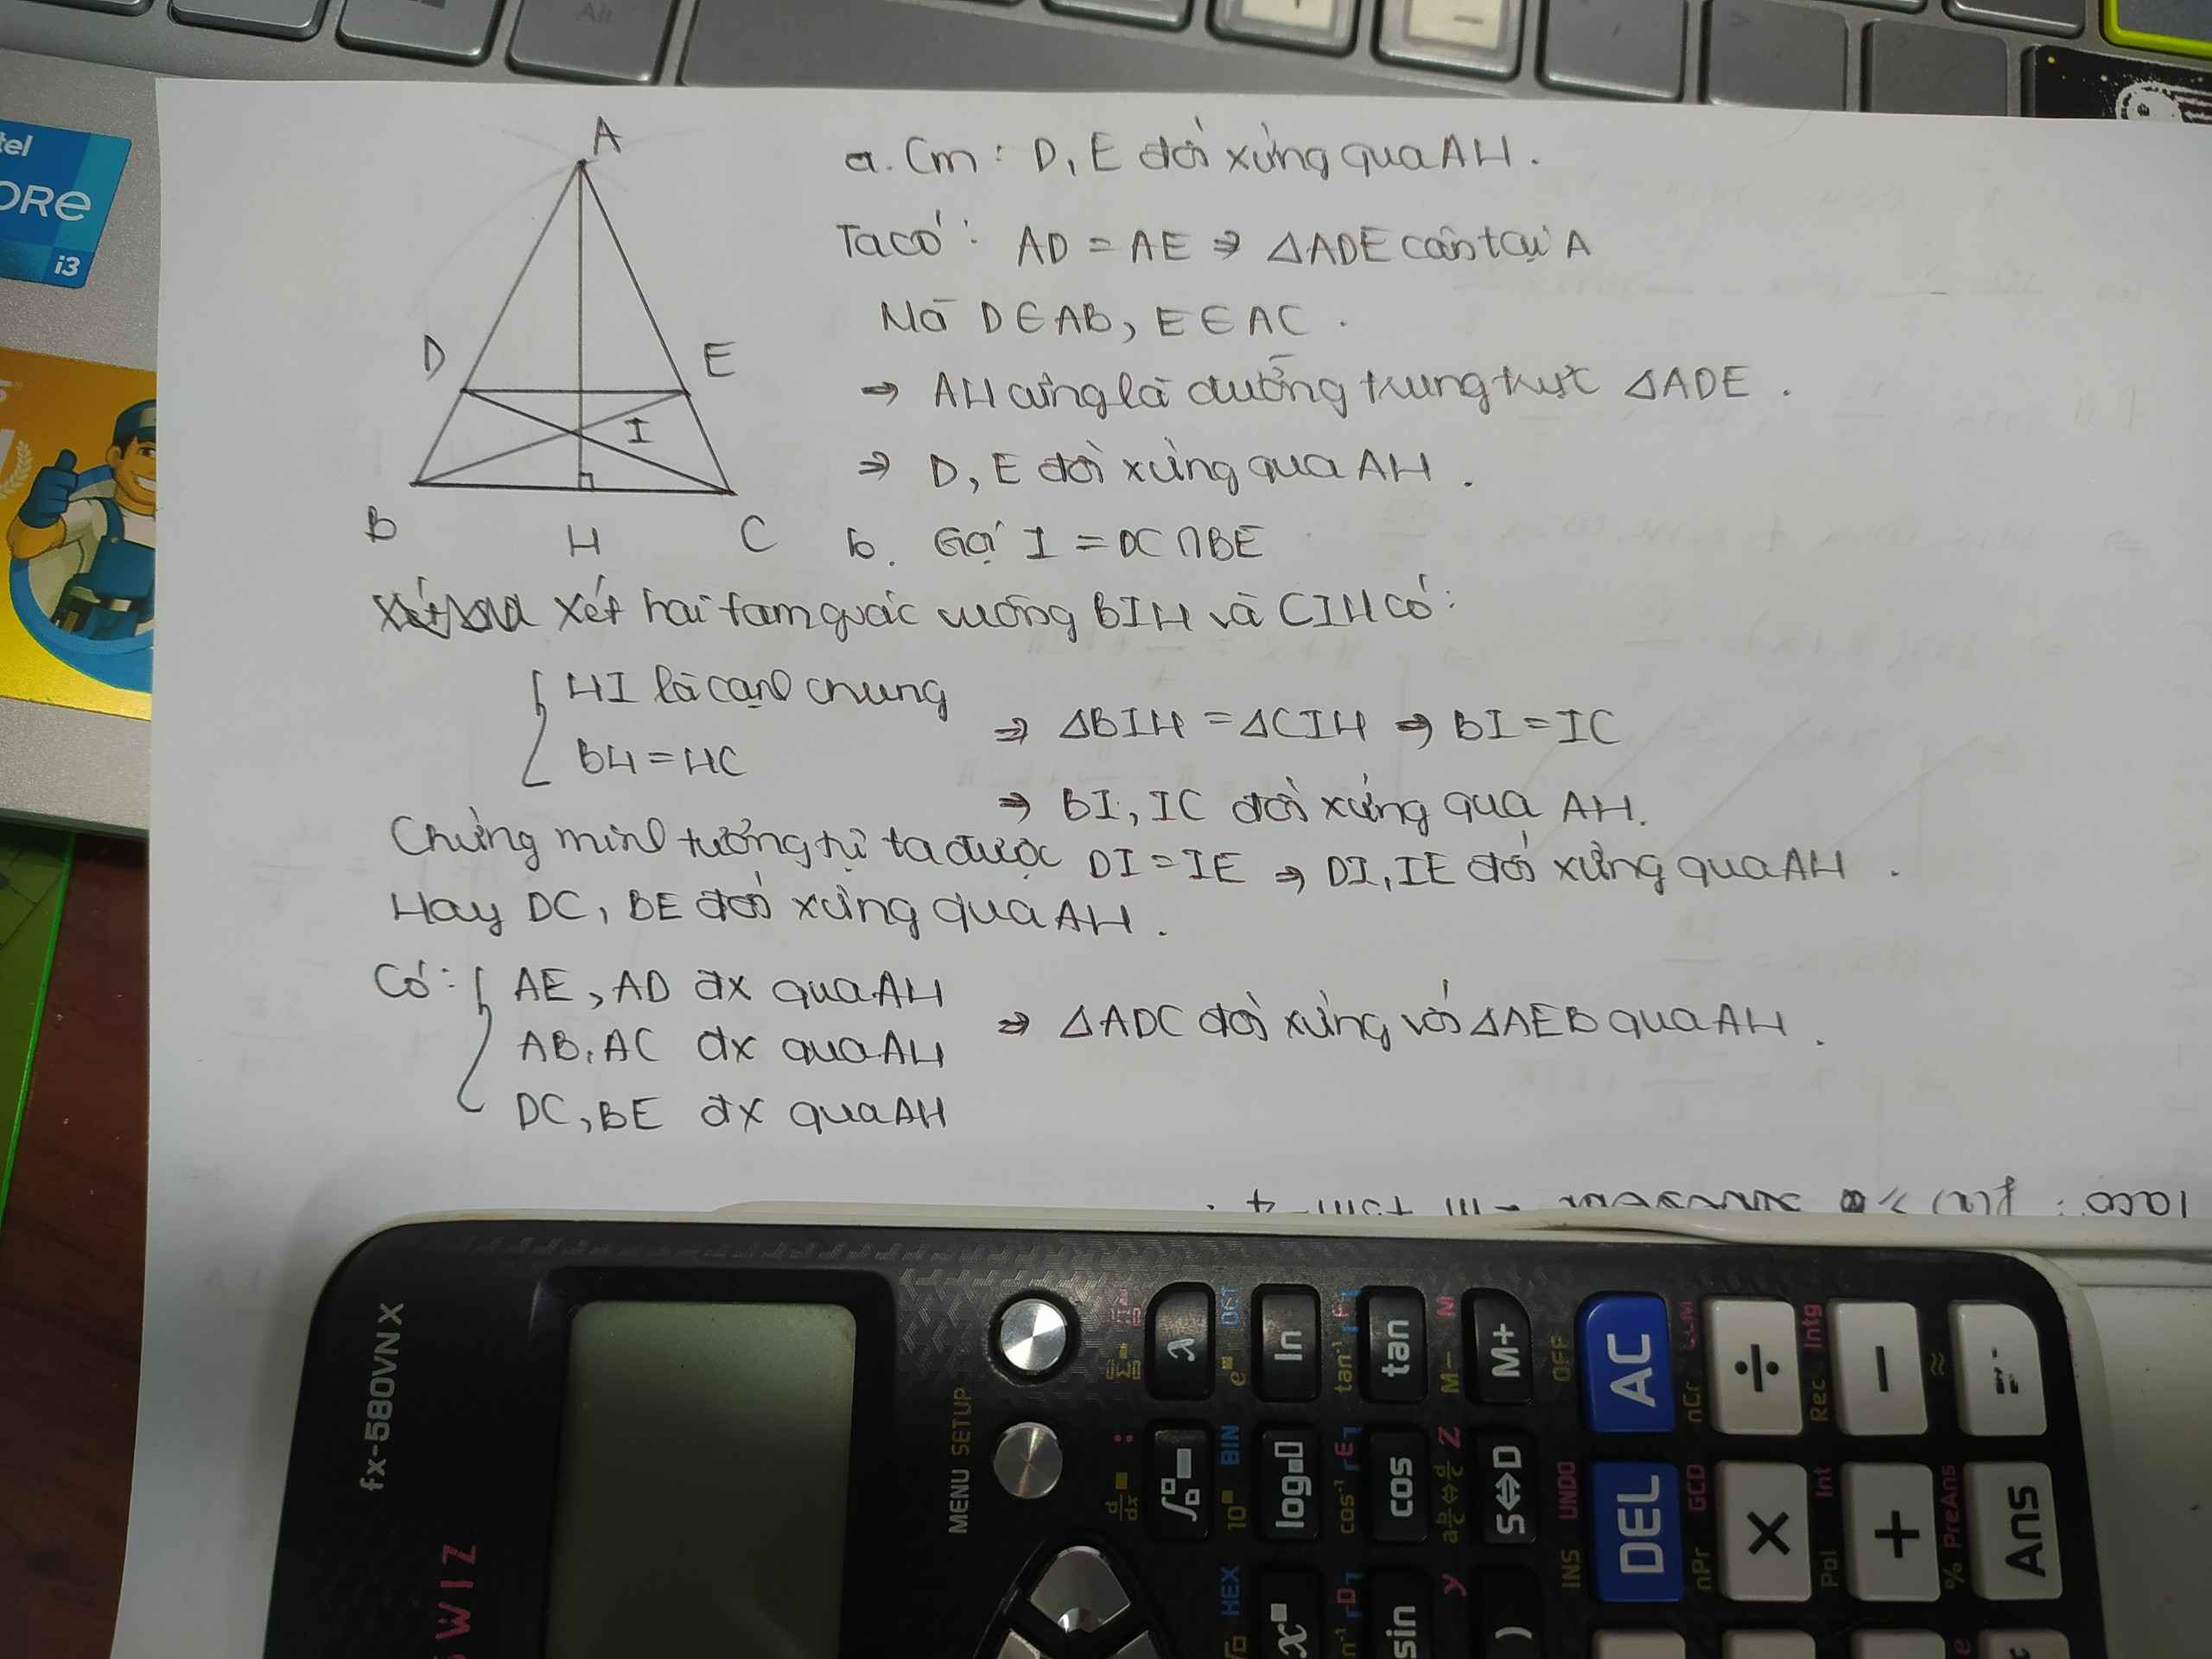 A
D
E
I
B
H
C
a. Cm: D, E đối xứng qua AH.
Ta có: AD = AE ⇒ △ADE cân tại A
Mà D ∈ AB, E ∈ AC.
⇒ AH cũng là đường trung trực △ADE.
⇒ D, E đối xứng qua AH.
b. Gọi I = DC ∩ BE
Xét hai tam guác vuông BIH và CIH có:
HI là cạnh chung
BH = HC
⇒ △BIH = △CIH ⇒ BI = IC
⇒ BI, IC đối xứng qua AH.
Chứng minh tương tự ta được DI = IE ⇒ DI, IE đối xứng qua AH.
Hay DC, BE đối xứng qua AH.
Có: AE, AD đx qua AH
AB, AC đx qua AH
DC, BE đx qua AH
⇒ △ADC đối xứng với △AEB qua AH.
tel
ORe
i3
Alt
fx-580VNX
SWIZ
MENU SETUP
ln
tan
M+
AC
÷
−
log
cos
S⇔D
DEL
×
+
Ans
sin
)
OFF
UNDO
INS
nCr
GCD
nPr
Rec
Intg
Pol
Int
% PreAns
HEX
BIN
M−
M
Z
y